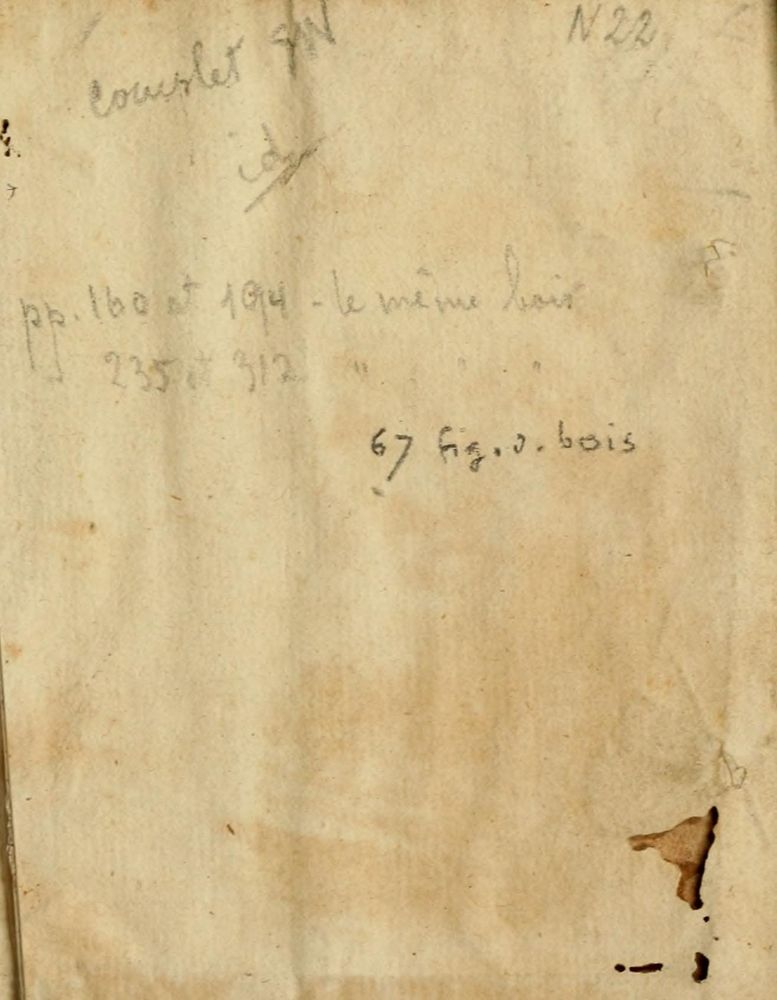 N 22
complet
pp. 160 et 194 - le même bois
235 et 312 " " "
67 fig. s. bois